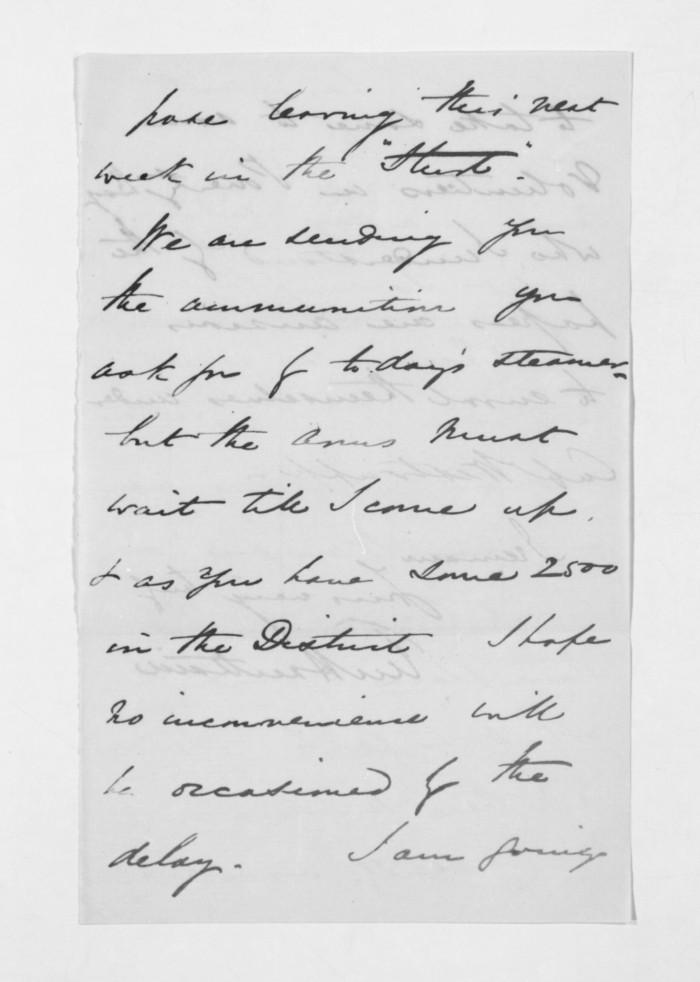 pose leaving this next
week in the "Sturt".
We are sending you
the ammunition you
ask for by to.day's steamer -
but the arms must
wait till I come up.
& as you have some 2500
in the District I hope
no inconvenience will
be occasioned by the
delay. I am going